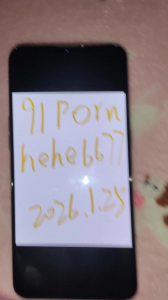 91 Porn
hehe6677
2026.1.25